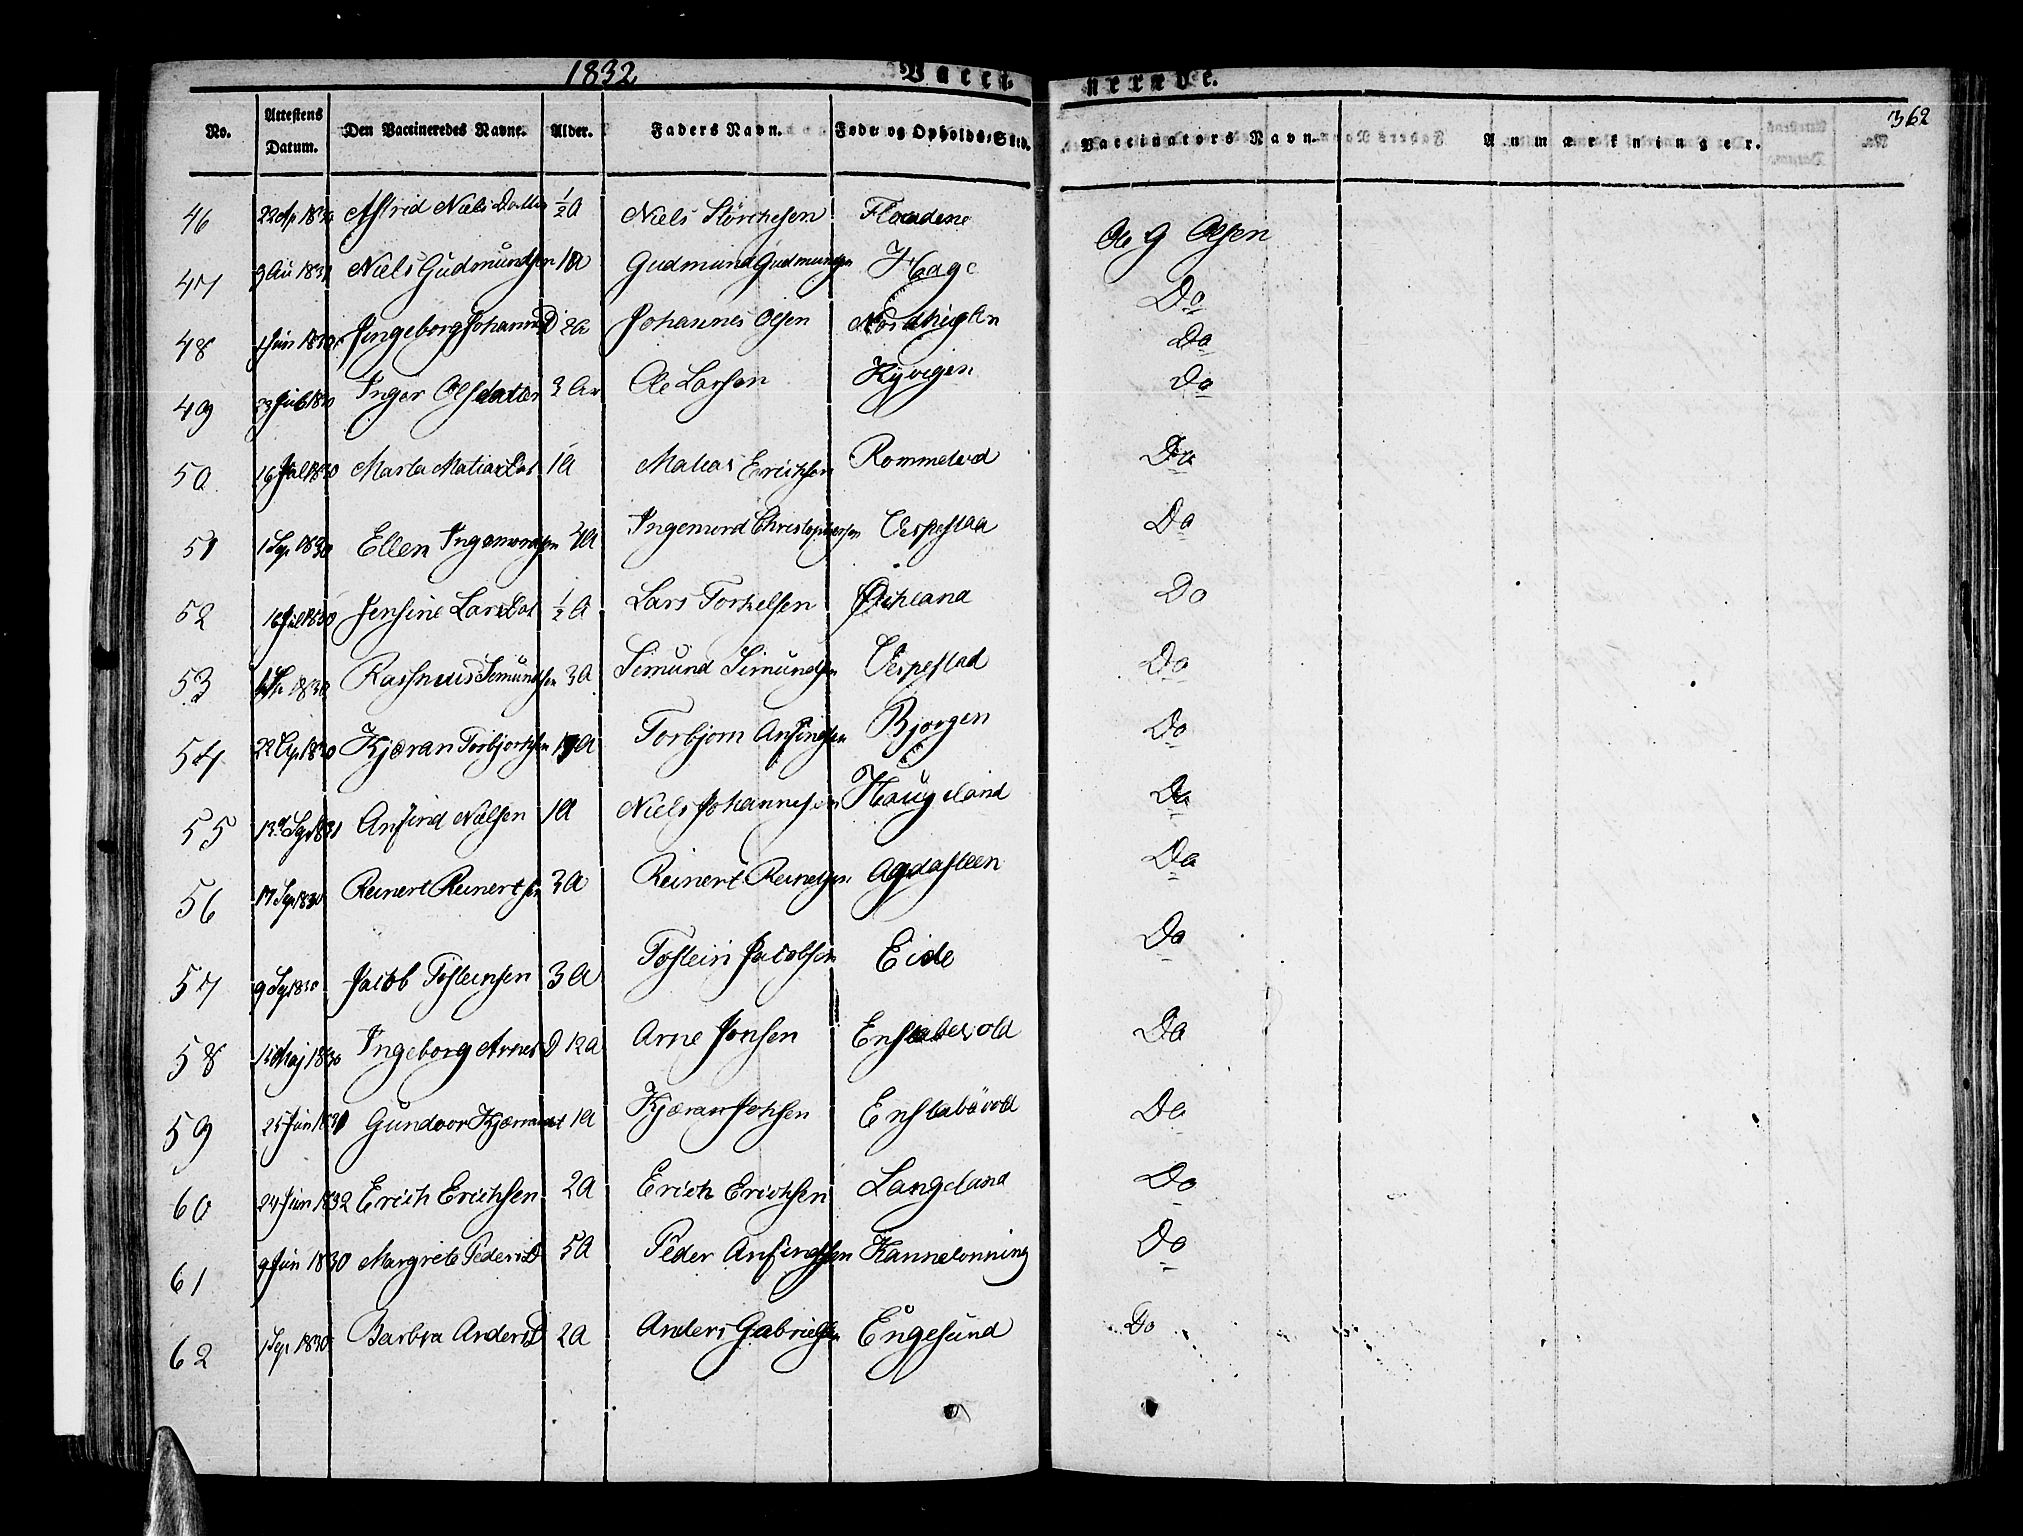 1832 Vacci nerede.
362
No. Attestens Datum. Den Vaccineredes Navne. Alder. Faders Navn. Føde- og Opholds-Sted. Vaccinators Navn. Anmærkninger.
46 1830 Astrid Niels Datter ½ A Niels Floridene Ole G Olsen
47 1831 Niels Gudmundsen 1 A Gudmund Gudmundsen Hage Do
48 Jun 1830 Ingeborg Johannes D 2 a Johannes Olsen Nordhuglen Do
49 1830 Inger Olsdatter 3 Aar Ole Larsen Kyvigen Do
50 16 Jul 1830 Marta Matias Dat 1 A Matias Erichsen Rommetvd Do
51 1 Sep 1830 Ellen 4 A Ingemord Christophersen Vespestad Do
52 16 Jul 1830 Jensine Lars Dat ½ A Lars Torkelsen Do
53 1830 Rasmus Simundsen 3 A Simund Simundsen Vespestad Do
54 22 1830 Kjæran A Torbjorn Anfindsen Bjorgen Do
55 13 Sep 1831 Anfind Nielsen 1 A Niels Johannesen Haugeland Do
56 17 Sep 1830 Reinert Reinertsen 3 A Reinert Agdasteen Do
57 9 Sep 1830 Jacob Tosteinsen 3 A Tostein Jacobsen Eide Do
58 Maj 1830 Ingeborg Arnes D 12 A Arne Jonsen Enstabevold Do
59 25 Jun Gundoor 1 A Kjæran Enstabövold Do
60 24 Jun 1832 Erich Erichsen 2 A Erich Erichsen Langeland Do
61 9 Jun 1830 Margrete Peders D 5 A Peder Anfindsen Kannelonning Do
62 1 Sep 1830 Barbra Anders D 2 A Anders Gabrielsen Engesund Do